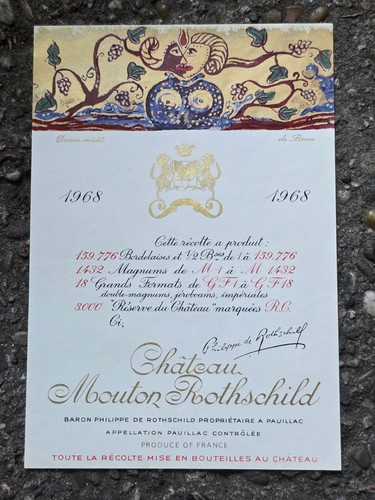 Dessin inédit de Bona
1968 1968
Cette récolte a produit :
159.776 Bordelaises et 1/2 Bses de 1 à 159.776
1.432 Magnums de M 1 à M 1.432
18 Grands Formats de G F 1 à G F 18
double-magnums, jéroboams, impériales
3.000 "Réserve du Château" marquées R.C.
Ci,
Philippe de Rothschild
Château
Mouton Rothschild
BARON PHILIPPE DE ROTHSCHILD PROPRIÉTAIRE A PAUILLAC
APPELLATION PAUILLAC CONTRÔLÉE
PRODUCE OF FRANCE
TOUTE LA RÉCOLTE MISE EN BOUTEILLES AU CHÂTEAU